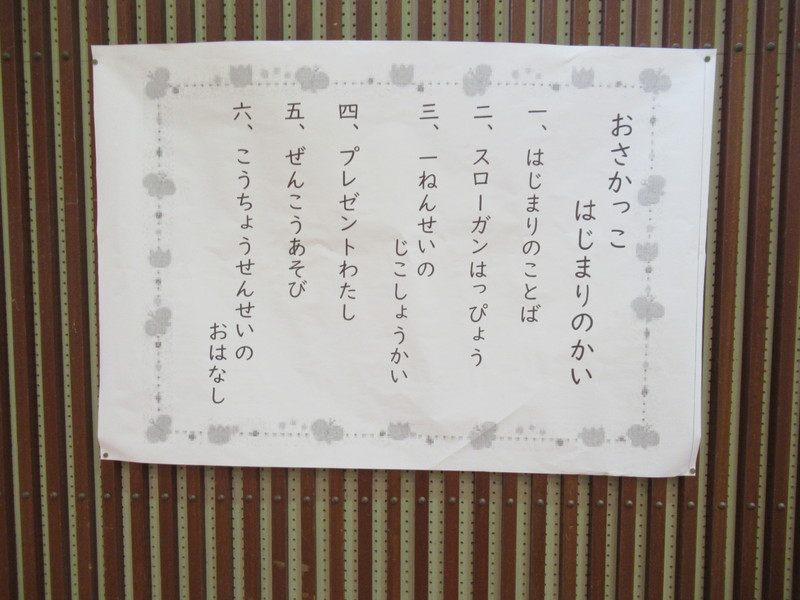 おさかっこ
はじまりのかい
一、はじまりのことば
二、スローガンはっぴょう
三、一ねんせいの
じこしょうかい
四、プレゼントわたし
五、ぜんこうあそび
六、こうちょうせんせいの
おはなし